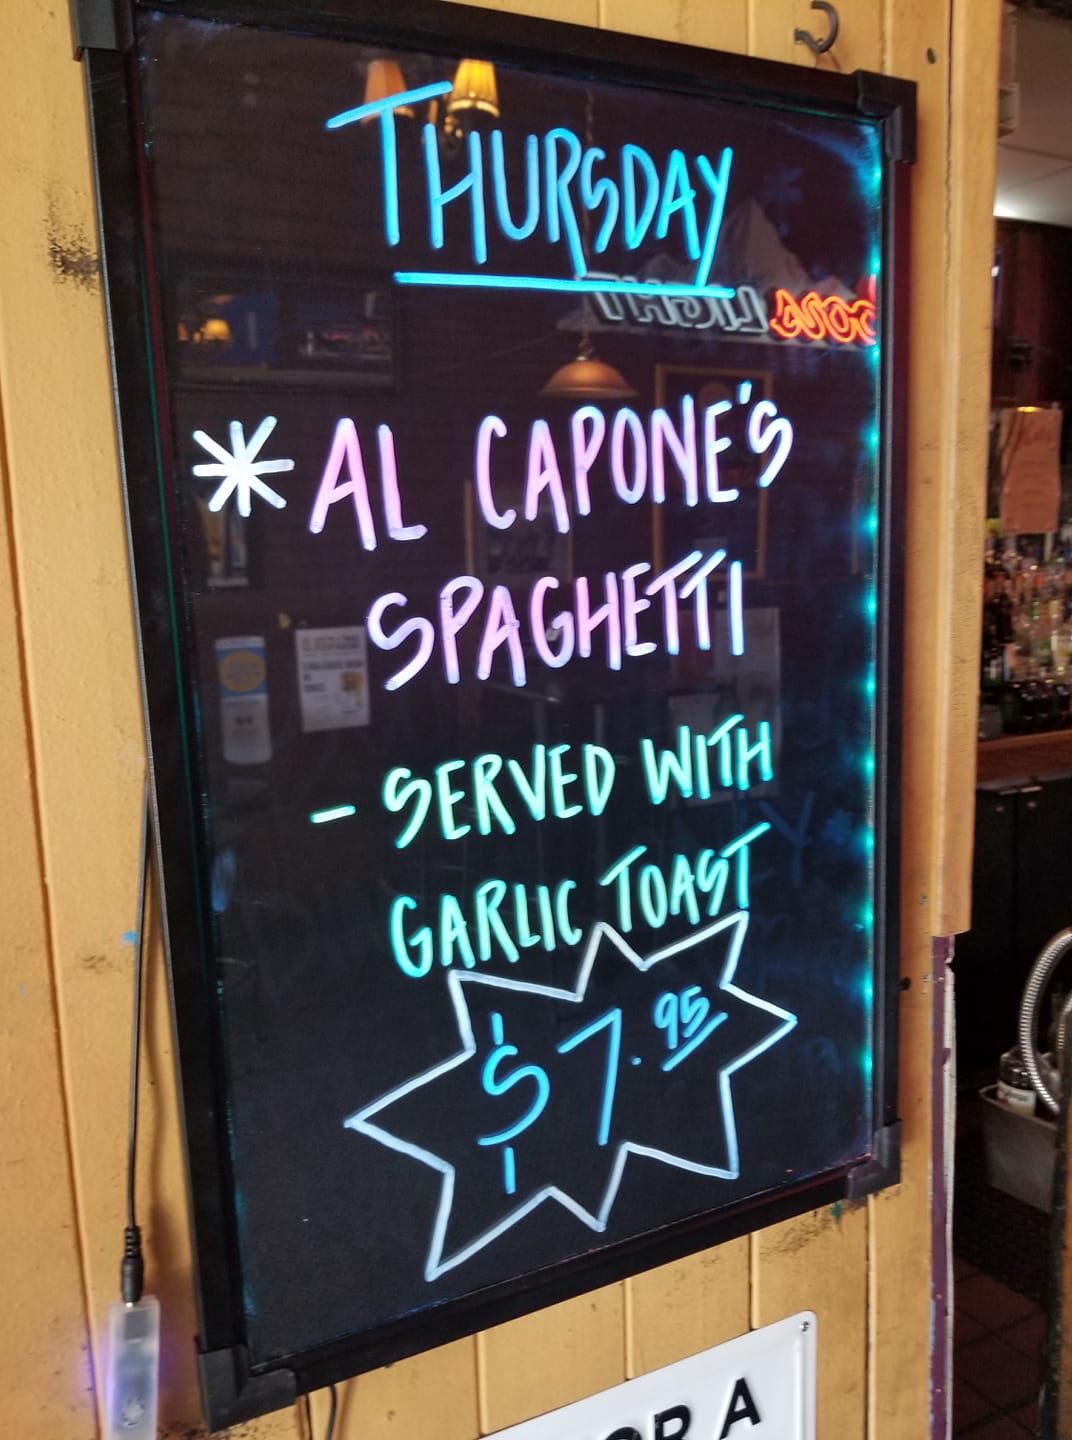 THURSDAY
LIGHT
* AL CAPONE'S
SPAGHETTI
- SERVED WITH
GARLIC TOAST
$7.95
OR A